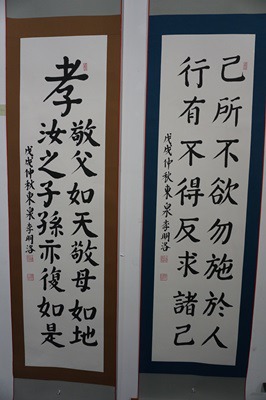 己所不欲勿施於人
行有不得反求諸己
戊戌仲秋東泉李明洛
孝
敬父如天敬母如地
汝之子孫亦復如是
戊戌仲秋東泉李明洛